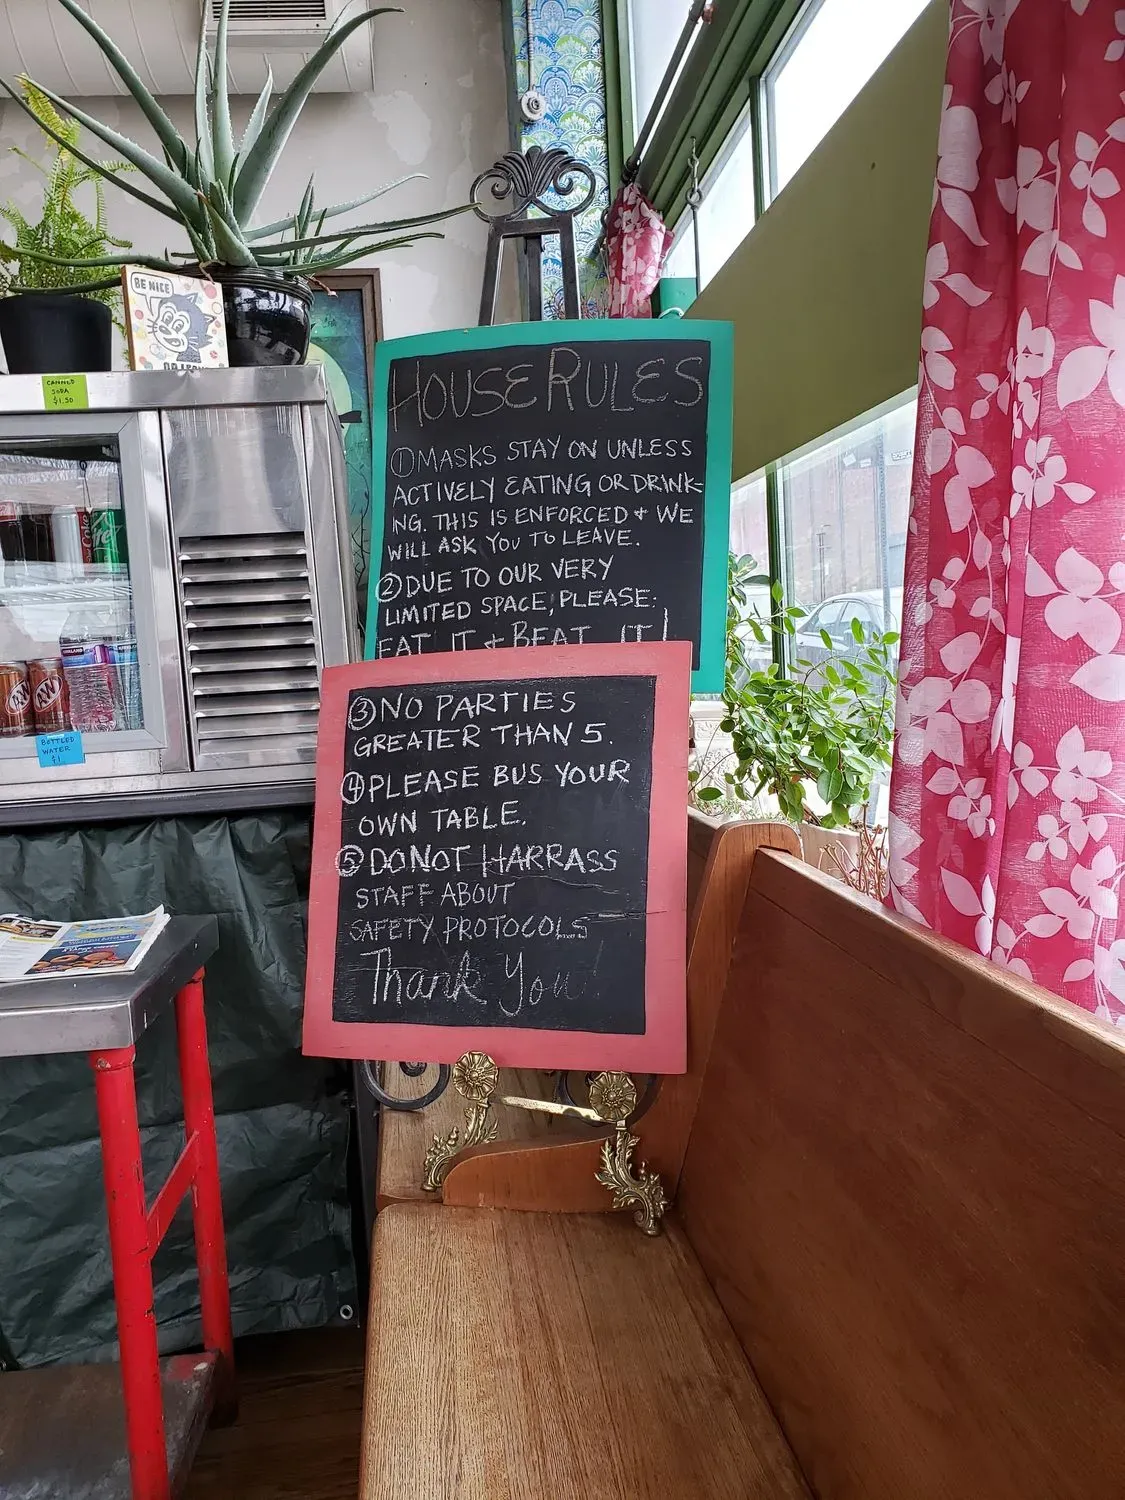 BE NICE
CANNED
SODA
$1.50
HOUSE RULES
① MASKS STAY ON UNLESS
ACTIVELY EATING OR DRINK-
NG. THIS IS ENFORCED + WE
WILL ASK YOU TO LEAVE.
② DUE TO OUR VERY
LIMITED SPACE, PLEASE:
EAT IT + BEAT IT!
③ NO PARTIES
GREATER THAN 5.
④ PLEASE BUS YOUR
OWN TABLE.
⑤ DO NOT HARRASS
STAFF ABOUT
SAFETY PROTOCOLS
Thank You!
A&W
BOTTLED
WATER
$1